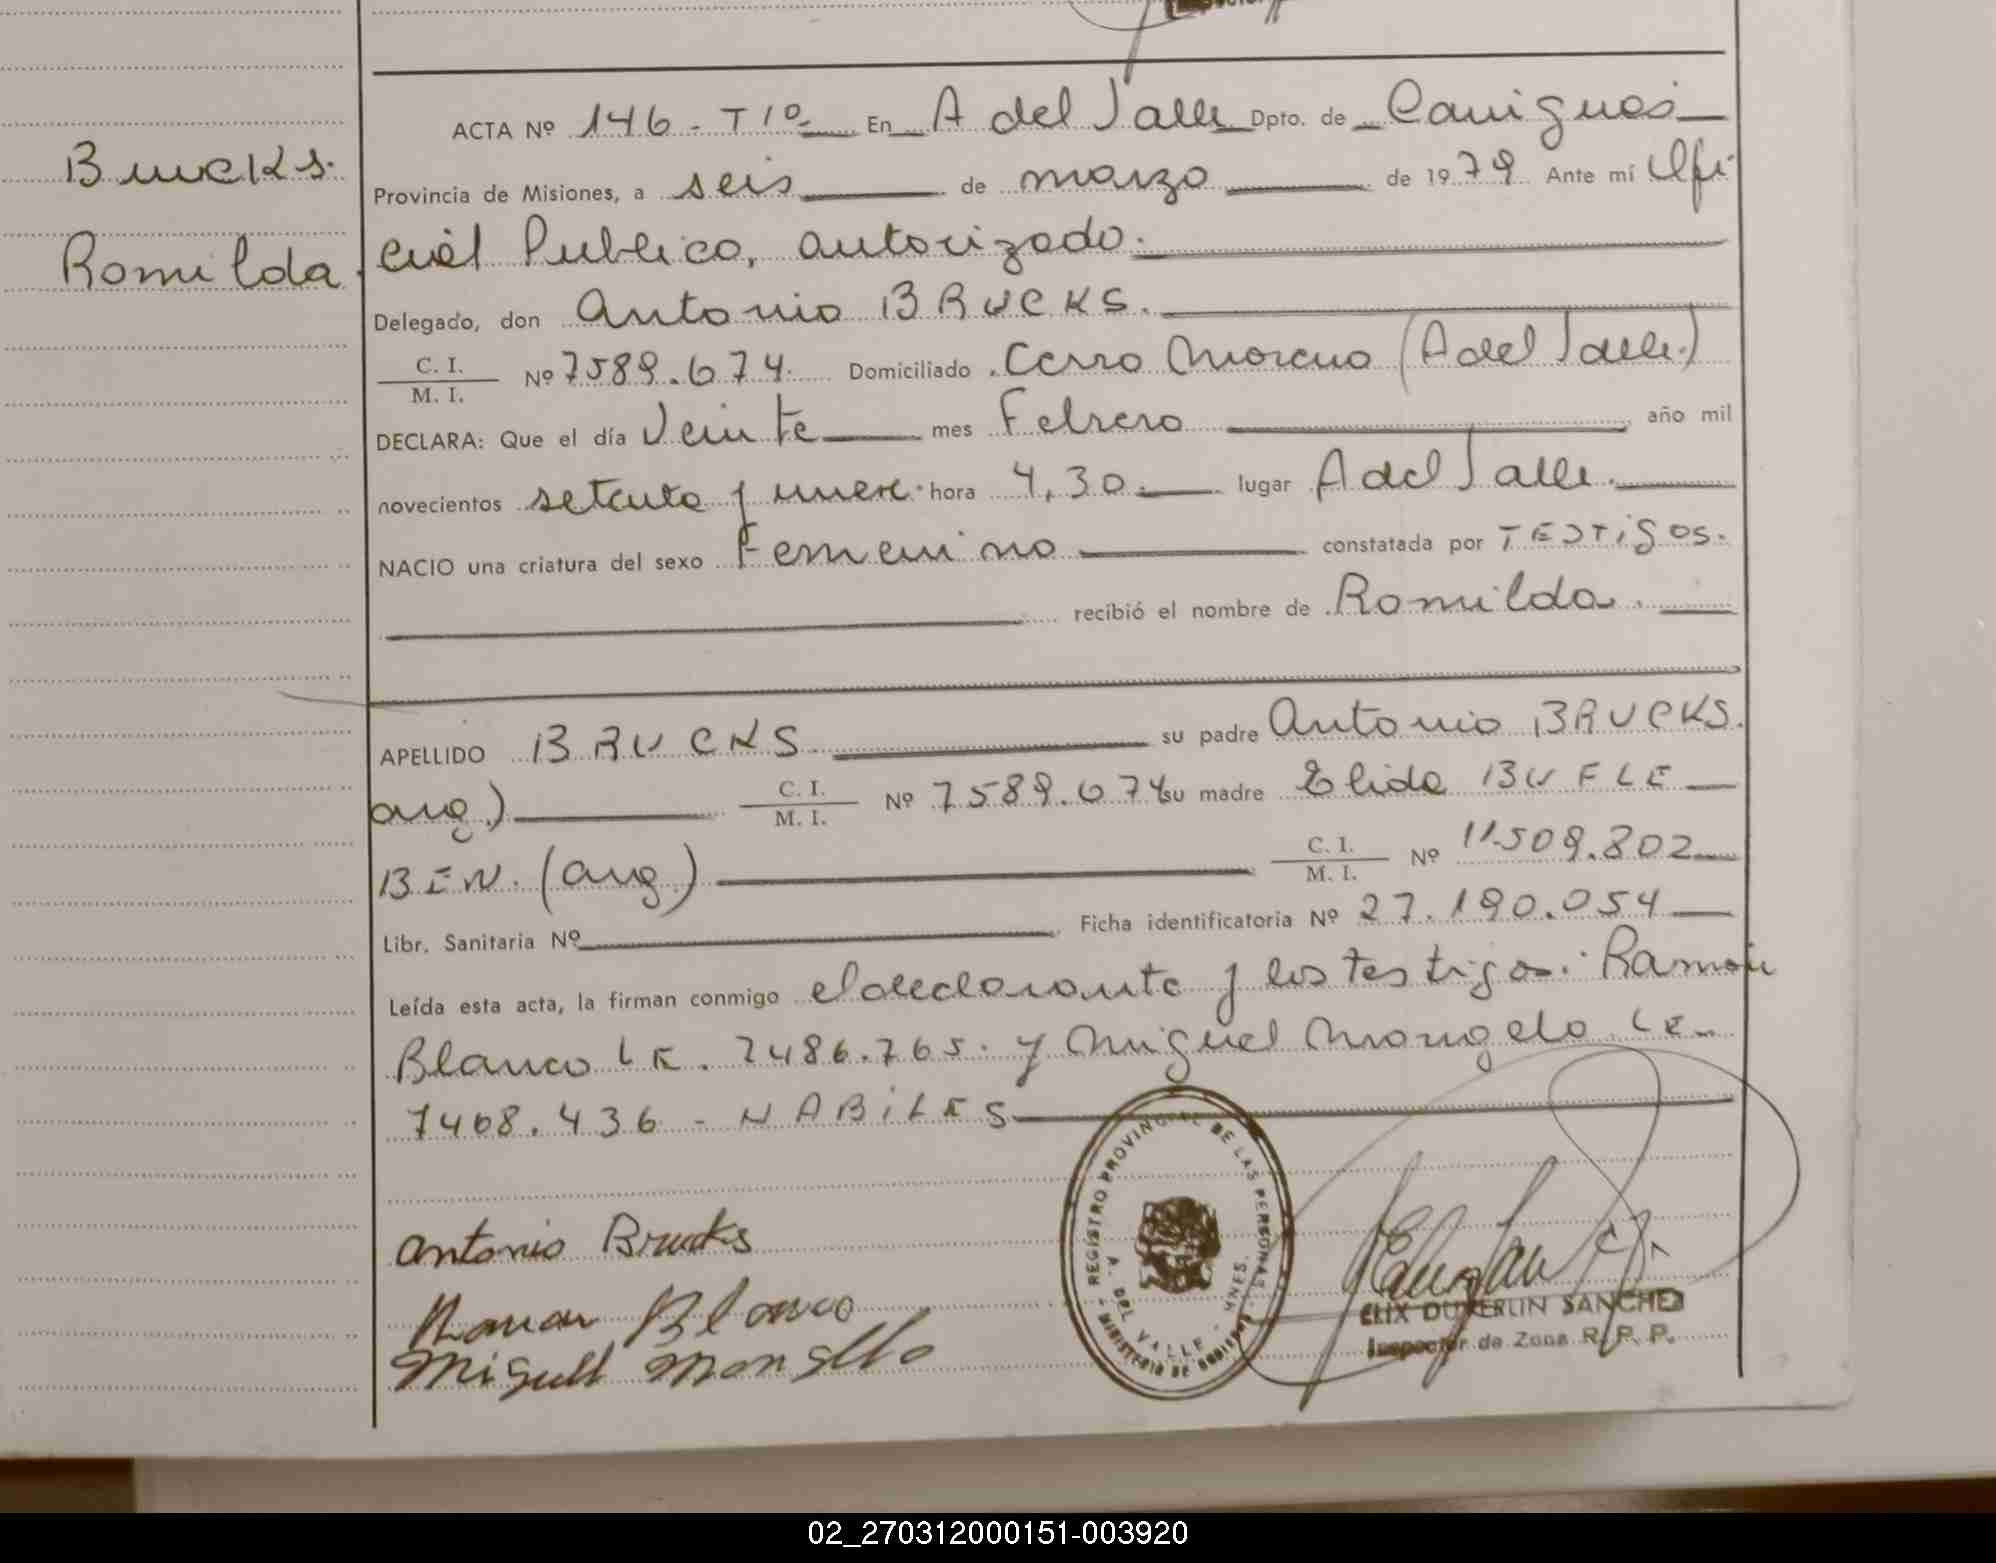 ACTA Nº 146 - T 1º En A del Valle Dpto. de Cainguas
Brucks.
Provincia de Misiones, a seis de marzo de 1979 Ante mí Ofi
Romilda.
cial Publico, autorizado.
Delegado, don Antonio BRUCKS.
C. I.
M. I. Nº 7589.674. Domiciliado Cerro Moreno (A del Valle.)
DECLARA: Que el día Veinte mes Febrero año mil
novecientos setenta y nueve. hora 4,30. lugar A del Valle.
NACIO una criatura del sexo Femenino constatada por TESTigos.
recibió el nombre de Romilda.
APELLIDO BRUCKS su padre Antonio BRUCKS.
arg.) C. I. M. I. Nº 7589.674 su madre Elida BUFLE
BEN. (arg.) C. I. M. I. Nº 11.509.802
Libr. Sanitaria Nº Ficha identificatoria Nº 27.190.054
Leída esta acta, la firman conmigo el declarante y los testigos: Ramón
Blanco LE. 7486.765. y Miguel Mongelo LE.
7468.436 - HABiLES
REGISTRO PROVINCIAL DE LAS PERSONAS
A. DEL VALLE - MNES.
MINISTERIO DE GOBIERNO
Antonio Brucks
Ramon Blanco
Miguel Mongelo
ELIX DUKERLIN SANCHEZ
Inspector de Zona R. P. P.
02_270312000151-003920